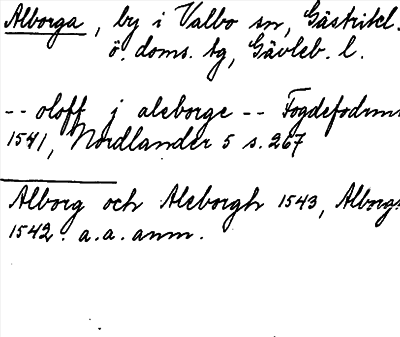 Alborga, by i Valbo sn, Gästrikl.
ö. doms. tg, Gävleb. l.
-- oloff j aleborge -- Fogdefodrin
1541, Nordlander 5 s. 267
Alborg och Aleborgh 1543, Alborg
1542. a.a. anm.